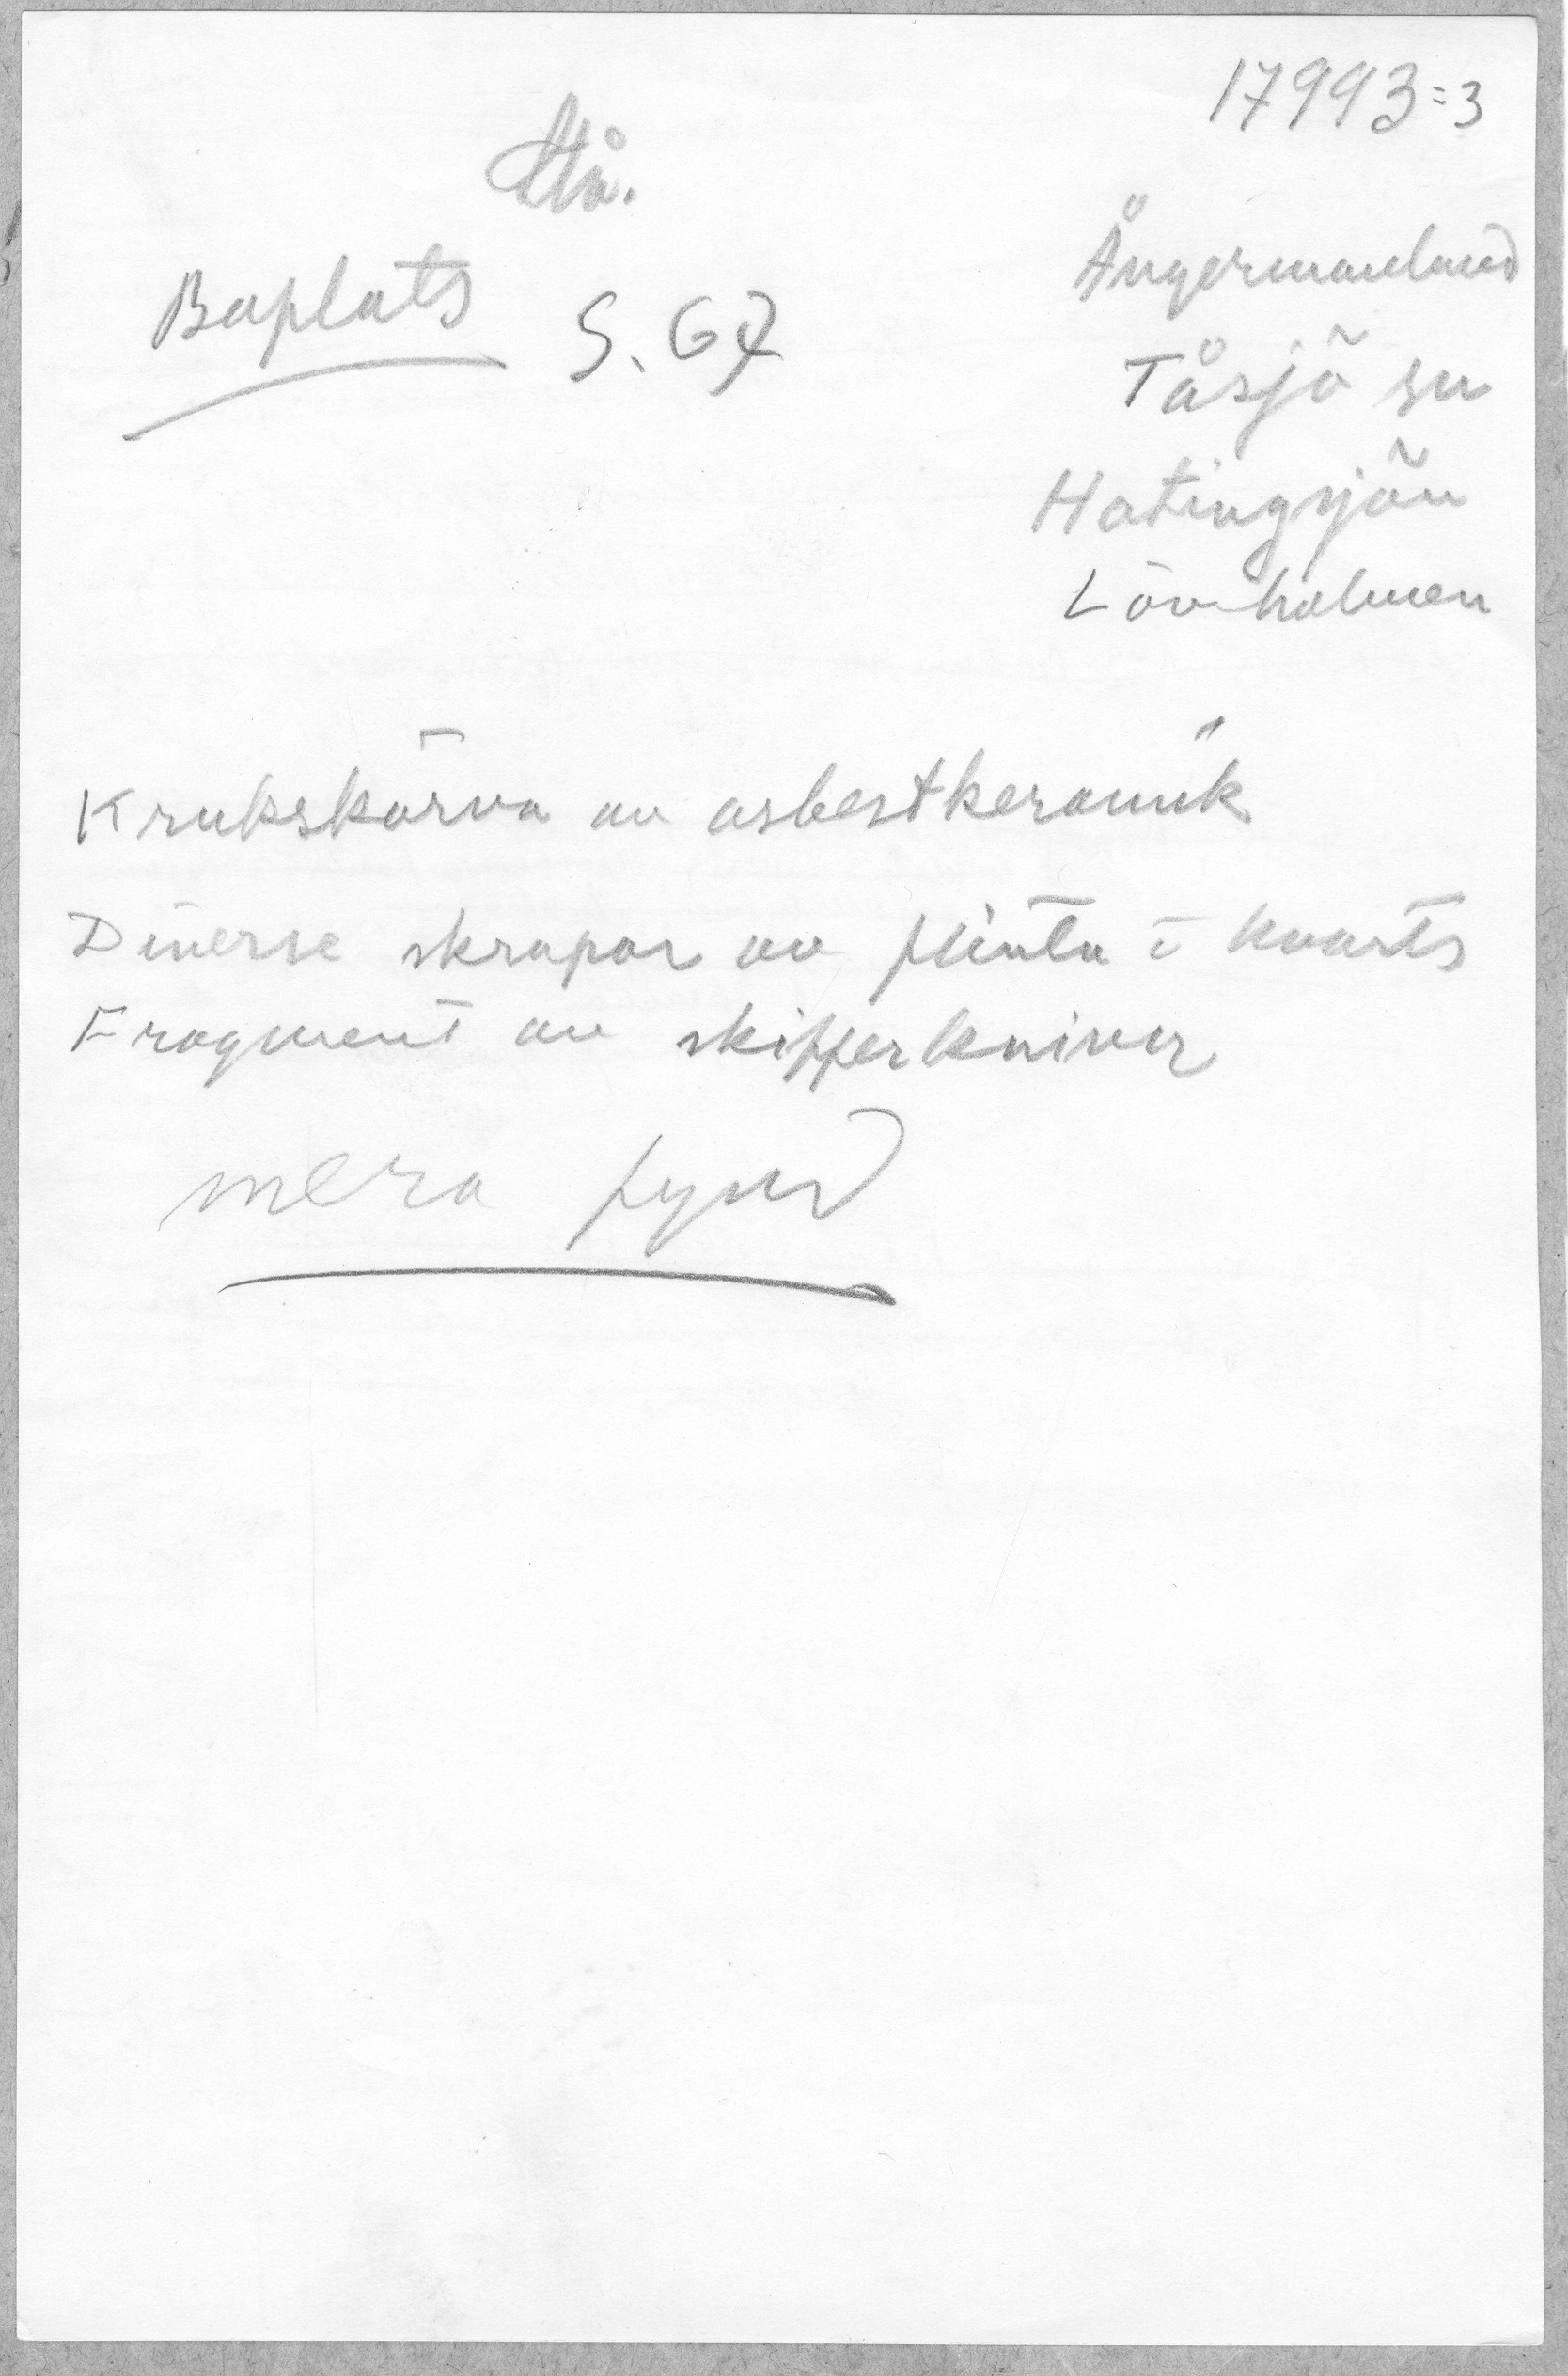 17993:3
Stå.
Boplats S. 67
Ångermanland
Tåsjö sn
Hotingsjön
Lövholmen
Krukskärva av asbestkeramik
Diverse skrapor av flinta i kvarts
Fragment av skifferkniver
mera fynd